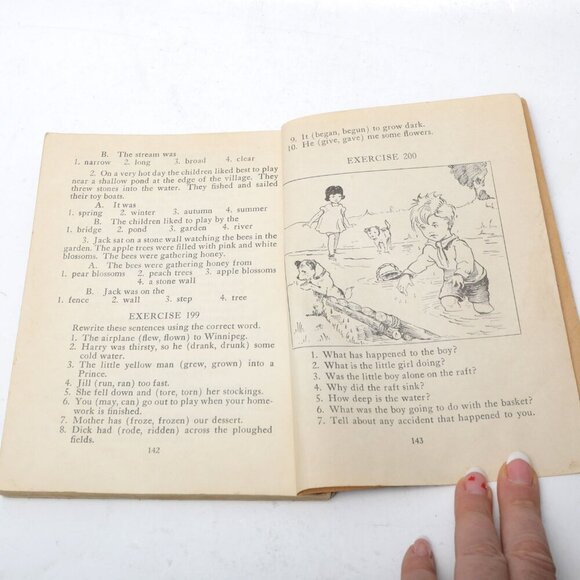 B. The stream was
1. narrow 2. long 3. broad 4. clear
2. On a very hot day the children liked best to play
near a shallow pond at the edge of the village. They
threw stones into the water. They fished and sailed
their toy boats.
A. It was
1. spring 2. winter 3. autumn 4. summer
B. The children liked to play by the
1. bridge 2. pond 3. garden 4. river
3. Jack sat on a stone wall watching the bees in the
garden. The apple trees were filled with pink and white
blossoms. The bees were gathering honey.
A. The bees were gathering honey from
1. pear blossoms 2. peach trees 3. apple blossoms
4. a stone wall
B. Jack was on the
1. fence 2. wall 3. step 4. tree
EXERCISE 199
Rewrite these sentences using the correct word.
1. The airplane (flew, flown) to Winnipeg.
2. Harry was thirsty, so he (drank, drunk) some
cold water.
3. The little yellow man (grew, grown) into a
Prince.
4. Jill (run, ran) too fast.
5. She fell down and (tore, torn) her stockings.
6. You (may, can) go out to play when your home-
work is finished.
7. Mother has (froze, frozen) our dessert.
8. Dick had (rode, ridden) across the ploughed
fields.
142
9. It (began, begun) to grow dark.
10. He (give, gave) me some flowers.
EXERCISE 200
1. What has happened to the boy?
2. What is the little girl doing?
3. Was the little boy alone on the raft?
4. Why did the raft sink?
5. How deep is the water?
6. What was the boy going to do with the basket?
7. Tell about any accident that happened to you.
143